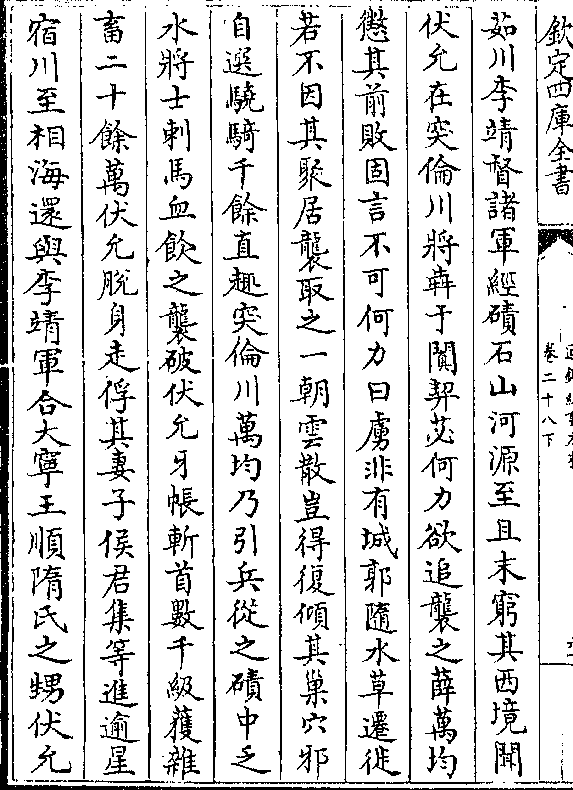 欽定四庫全書
卷二十八下
茹川李靖督諸軍經磧石山河源至且末窮其西境聞
伏允在突倫川將犇于闐契苾何力欲追襲之薛萬均
懲其前敗固言不可何力曰虜非有城郭隨水草遷徙
若不因其聚居襲取之一朝雲散豈得復傾其巢穴邪
自選驍騎千餘直趣突倫川萬均乃引兵從之磧中乏
水將士刺馬血飲之襲破伏允牙帳斬首數千級獲雜
畜二十餘萬伏允脫身走俘其妻子侯君集等進逾星
宿川至柏海還與李靖軍合大寧王順隋氏之甥伏允